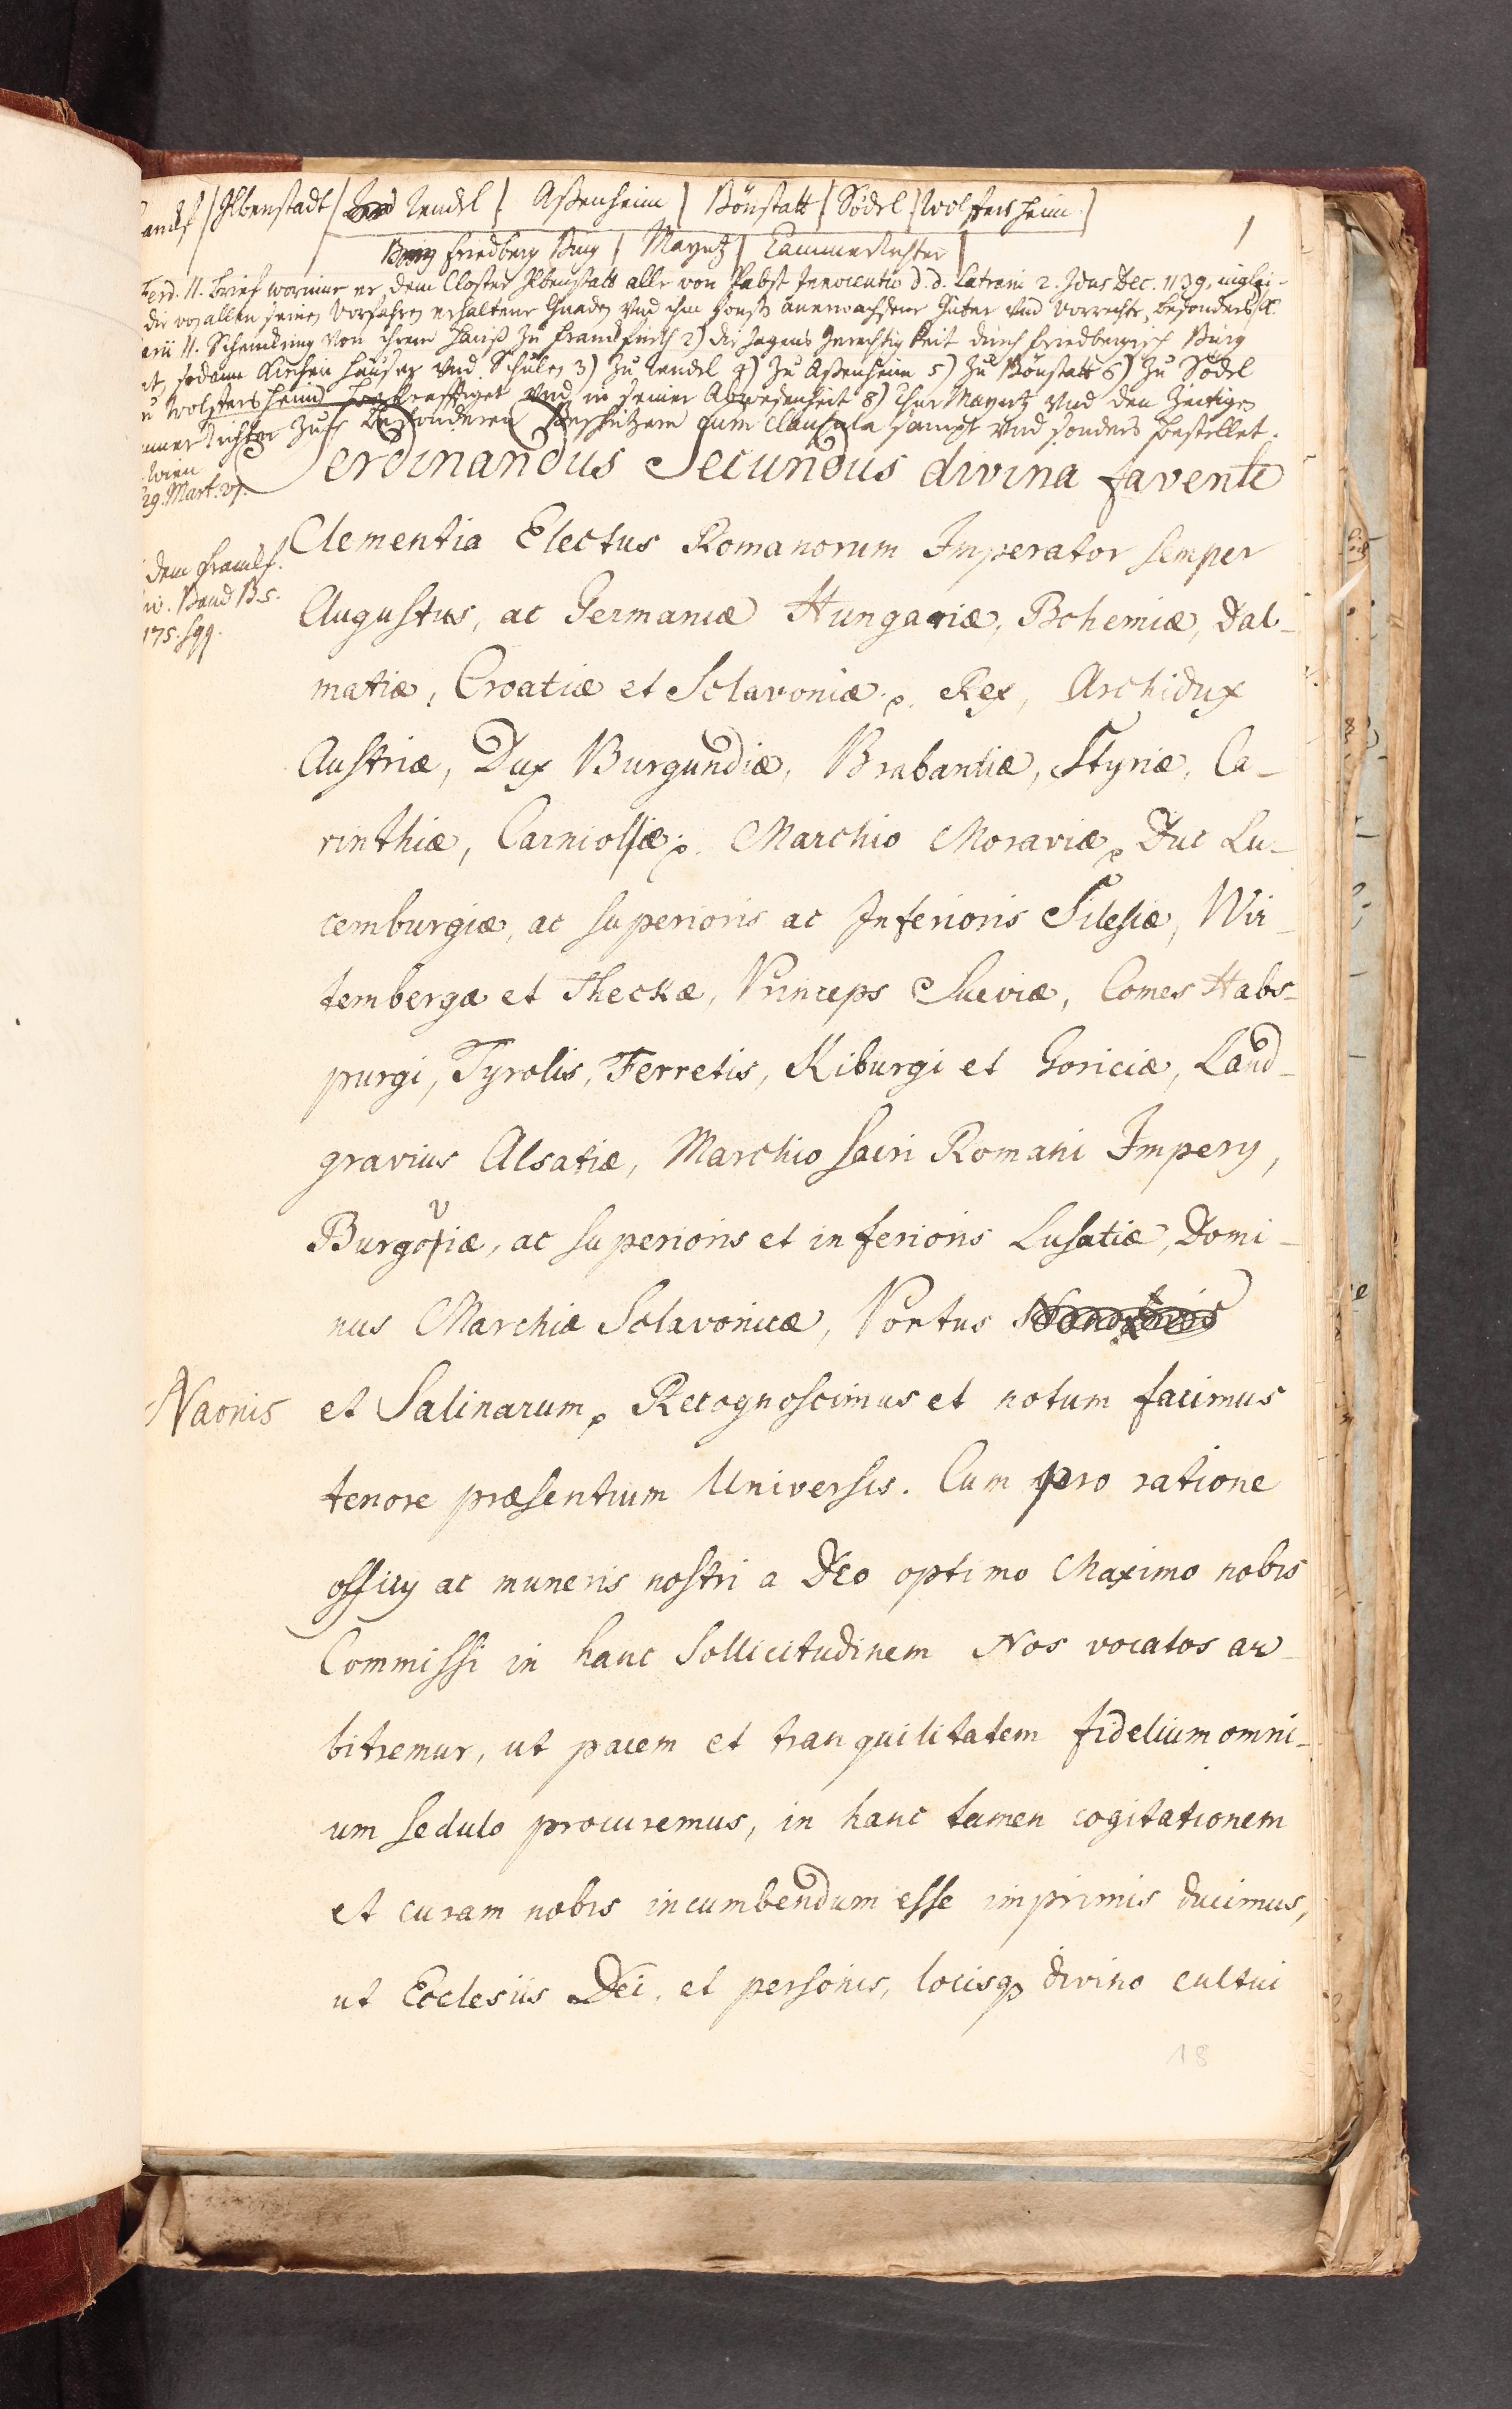 Ilbenstadt / Rendel / Aßenheim / Bönstatt / Södel / Wolffersheim /
1
Friedberg Burg / Mayntz / CammerRichter /
Ferd. II. Brief worinne er dem Closter Ilbenstatt alle von Pabst Innocentio d. d. Laterani 2. Idus Dec. 1139. inglei-
die von allen seinen Vorfahren erhaltene Gnaden und ihm sonst anerwachsene Güter und Vorrechte, besonders
II. Schenckung von ihrem Hauß zu Franckfurth 2) die Jagens Gerechtigkeit durch Friedbergisch Burg
sodann Kirchen Häuser und Schulen 3) zu Rendel 4) zu Aßenheim 5) zu Bönstatt 6) zu Södel
Wolffersheim bekrefftiget und in seiner Abwesenheit 8) Chur Mayntz und den Zeitigen
Richter zu besonderen Beschützern cum clausula sampt und sonders bestellet.
Wien
29. Mart.
Ferdinandus Secundus divina favente
Clementia Electus Romanorum Imperator semper
dem Franckf.
Band B. 5.
175. sqq.
Augustus, ac Germaniæ Hungariæ, Bohemiæ, Dal-
matiæ, Croatiæ et Sclavoniæ p. Rex, Archidux
Austriæ, Dux Burgundiæ, Brabantiæ, Styriæ, Ca-
rinthiæ, Carniolæ p. Marchio Moraviæ p Duc Lu-
cemburgiæ, ac superioris ac Inferioris Silesiæ, Wir-
tembergæ et Theckæ, Princeps Sueviæ, Comes Habs-
purgi, Tyrolis, Ferretis, Kiburgi et Goriciæ, Land-
gravius Alsatiæ, Marchio sacri Romani Impery,
Burgoviæ, ac superioris et inferioris Lusatiæ, Domi-
nus Marchiæ Sclavonicæ, Portus
Naonis et Salinarum p Recognoscimus et notum facimus
tenore præsentium Universis. Cum pro ratione
officy ac muneris nostri a Deo optimo Maximo nobis
Commissi in hanc sollicitudinem Nos vocatos ar-
bitremur, ut pacem et tranquilitatem fidelium omni-
um sedulo procuremus, in hanc tamen cogitationem
et curam nobis incumbendum esse imprimis ducimus,
ut Ecclesiis Dei, et personis, locisq divino cultui
18